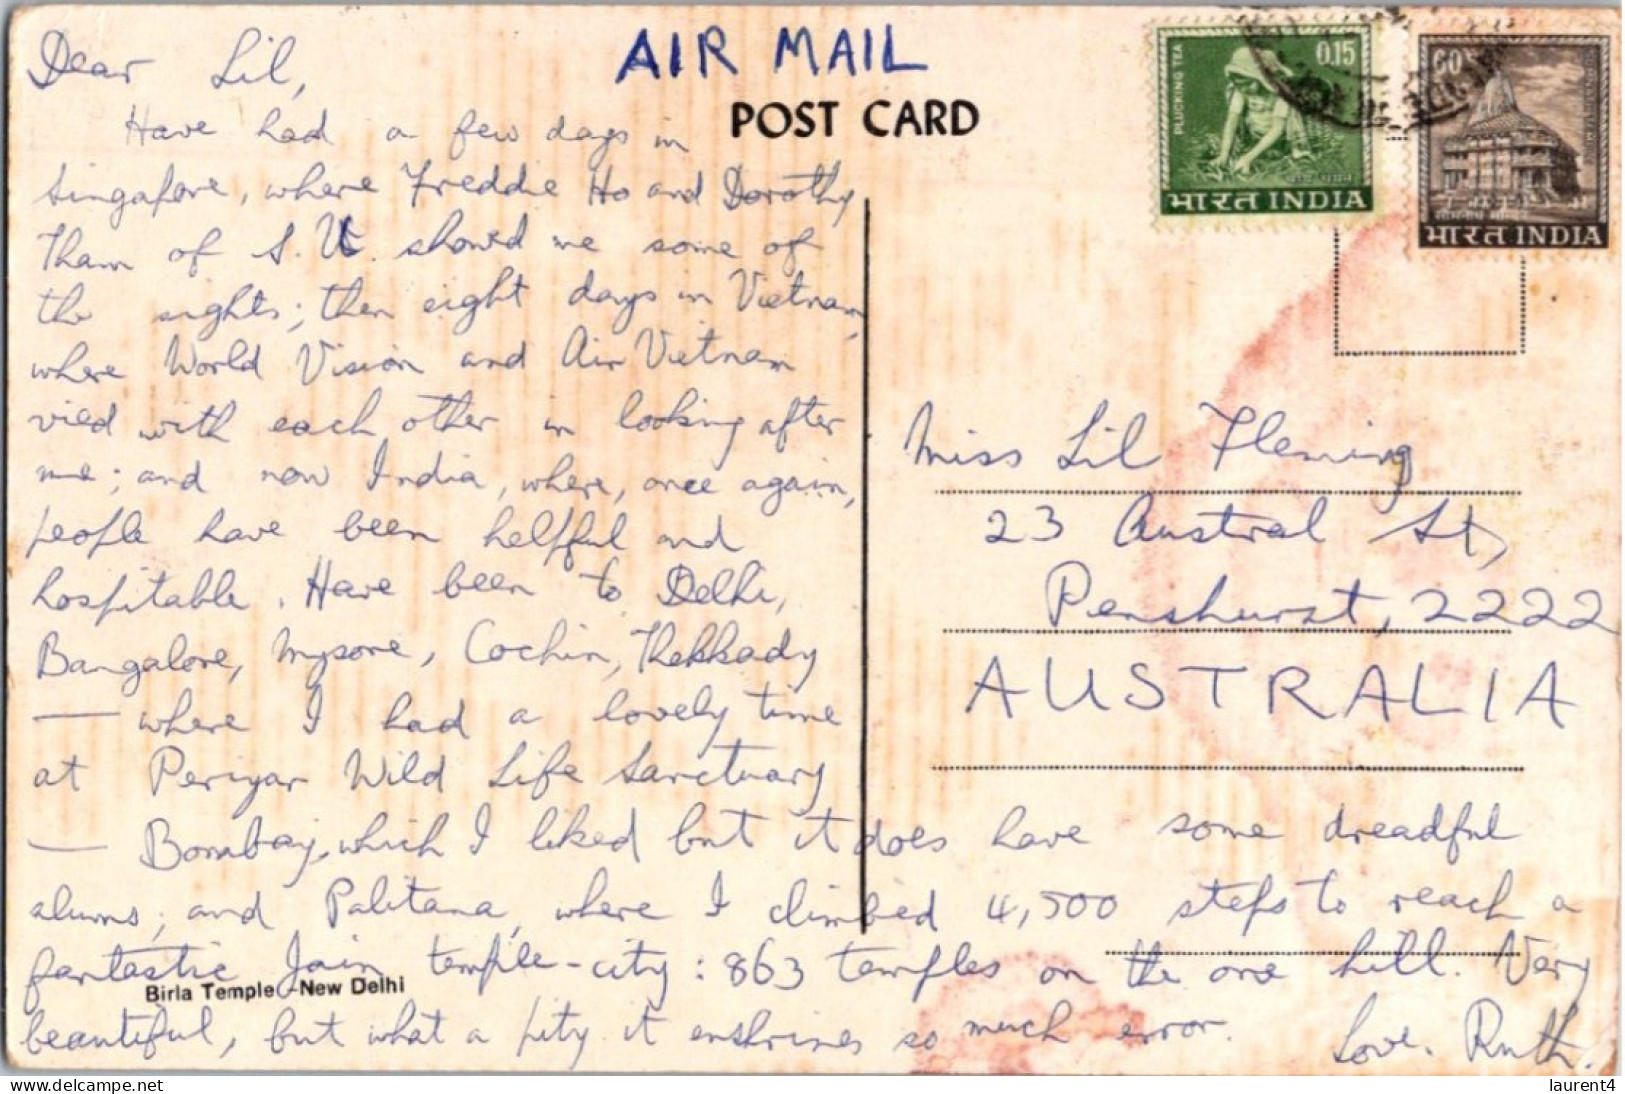 AIR MAIL
POST CARD
PLUCKING TEA
0.15
भारत INDIA
60
सोमनाथ मन्दिर
भारत INDIA
Dear Lil,
Have had a few days in
Singapore, where Freddie Ho and Dorothy
Tham of S.U. showed me some of
the sights; then eight days in Vietnam,
where World Vision and Air Vietnam
vied with each other in looking after
me; and now India, where, once again,
people have been helpful and
hospitable. Have been to Delhi,
Bangalore, Mysore, Cochin, Thekkady
— where I had a lovely time
at Periyar Wild Life Sanctuary
— Bombay, which I liked but it does have some dreadful
slums; and Palitana, where I climbed 4,500 steps to reach a
fantastic Jain temple-city: 863 temples on the one hill. Very
beautiful, but what a pity it enshrines so much error. Love, Ruth.
Birla Temple - New Delhi
Miss Lil Fleming
23 Austral St,
Penshurst, 2222
AUSTRALIA
laurent4